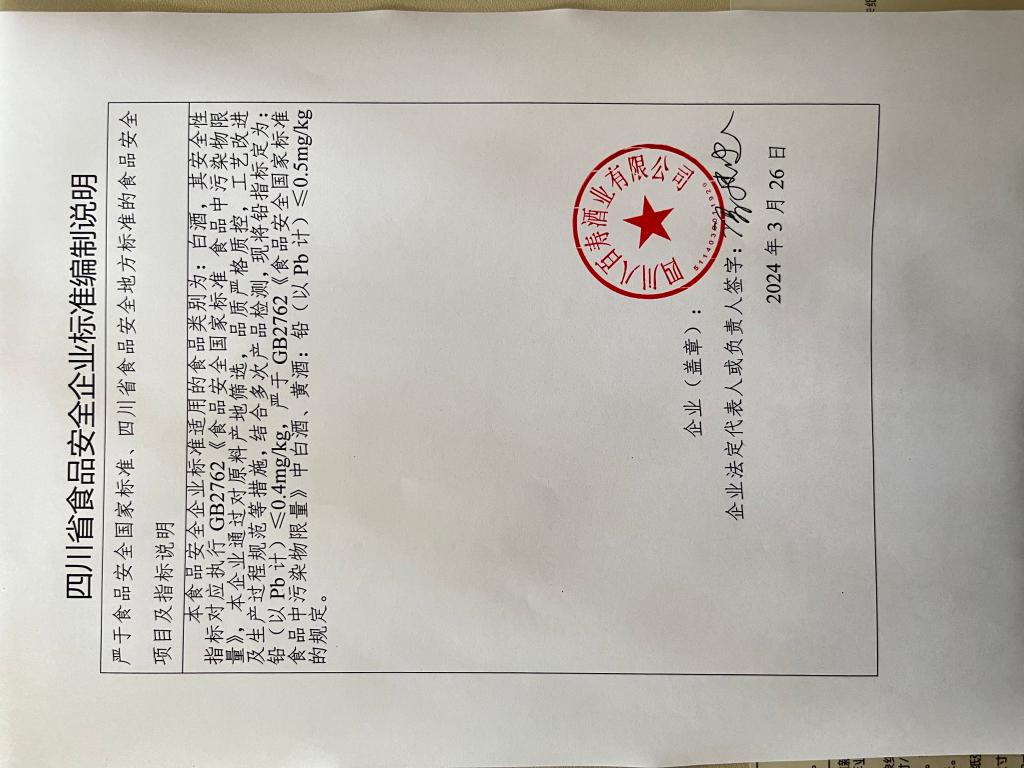 四川省食品安全企业标准编制说明
严于食品安全国家标准、四川省食品安全地方标准的食品安全
项目及指标说明
本食品安全企业标准适用的食品类别为：白酒，其安全性
指标对应执行 GB2762《食品安全国家标准 食品中污染物限
量》，本企业通过对原料产地筛选，品质严格质控，工艺改进
及生产过程规范等措施，结合多次产品检测，现将铅指标定为：
铅（以 Pb 计）≤0.4mg/kg，严于 GB2762《食品安全国家标准
食品中污染物限量》中白酒、黄酒：铅（以 Pb 计）≤0.5mg/kg
的规定。
四川八百寿酒业有限公司
企业（盖章）：
企业法定代表人或负责人签字：
2024 年 3 月 26 日